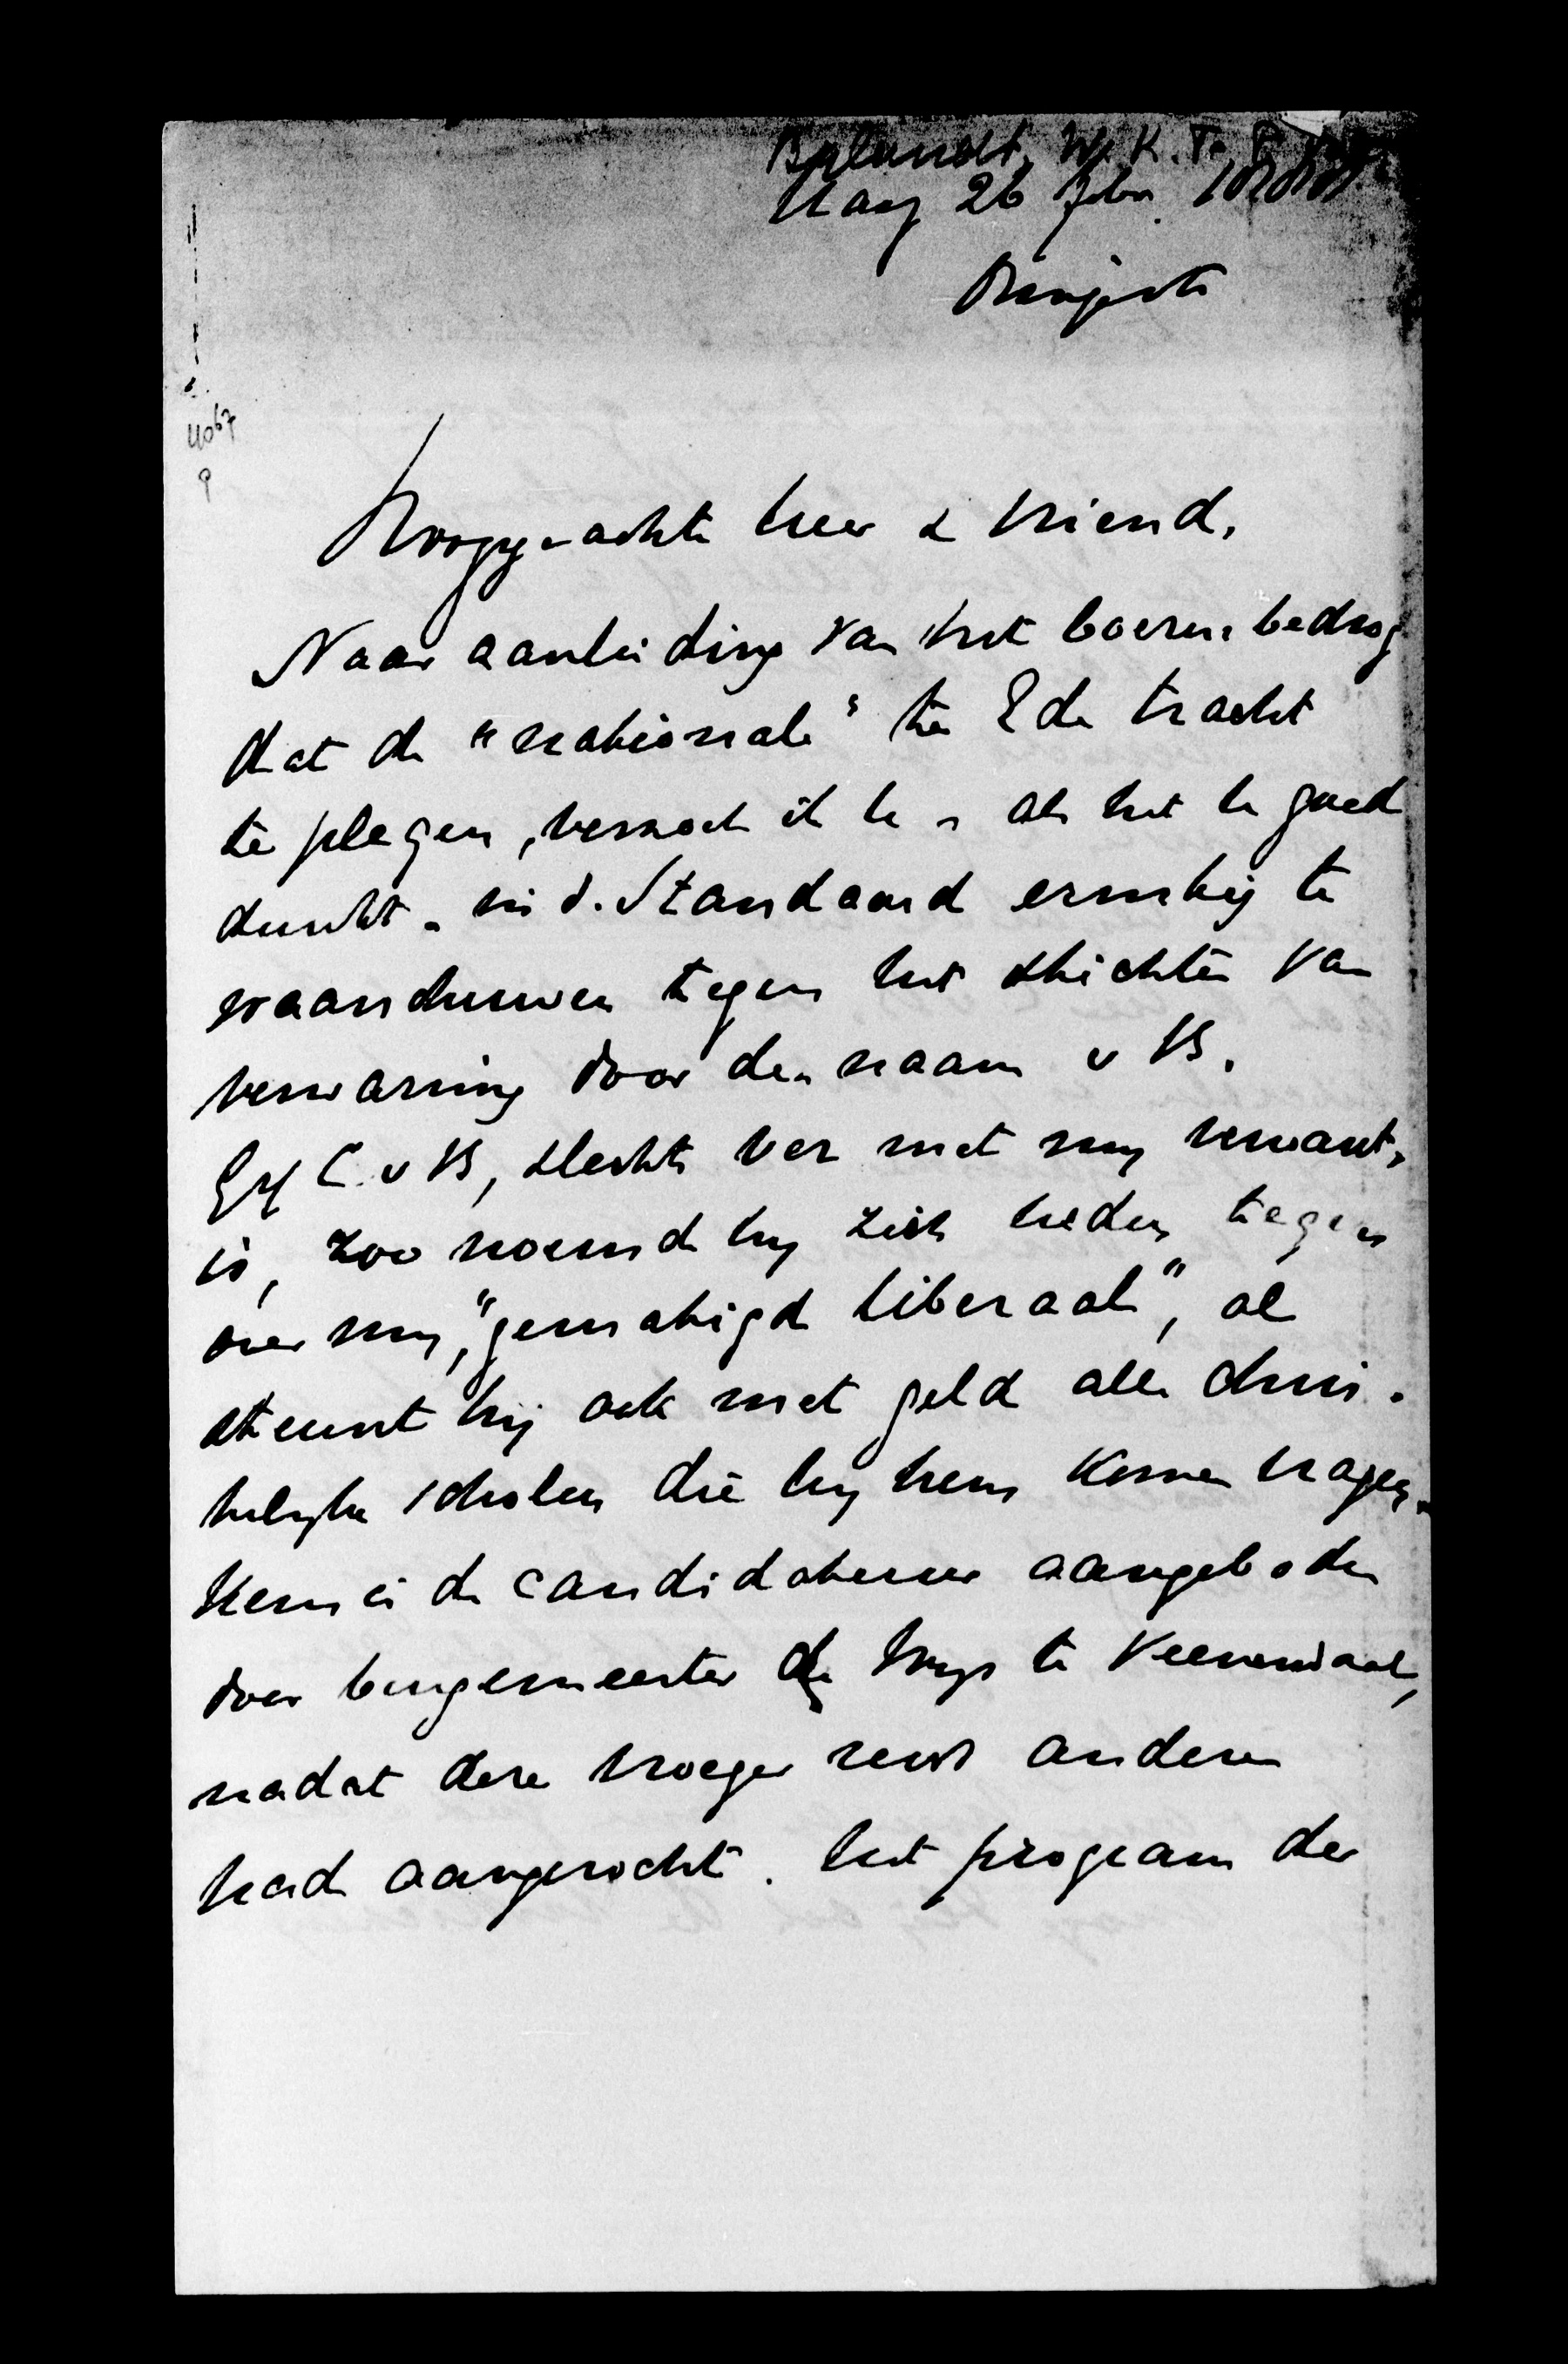 Bylandt, W. K. F. P.
Haag 26 Febr.
4067
9
Hooggeachte heer & vriend,
Naar aanleiding van het boerenbedrog
dat de "nationale" te Ede tracht
te plegen, verzoek ik U - als het U goed
dunkt - in d. Standaard ernstig te
waarschuwen tegen het stichten van
verwarring door den naam v B.
Gf C. v B, slechts ver met my verwant,
is, zoo noemde hy zich heden tegen
over my, "gematigd liberaal", al
steunt hij ook met geld alle chris-
telyke scholen die hy hem komen vragen.
Hem is de candidatuur aangeboden
door burgemeester de Wys te Veenendaal,
nadat deze vroeger reeds anderen
had aangezocht. Het program der